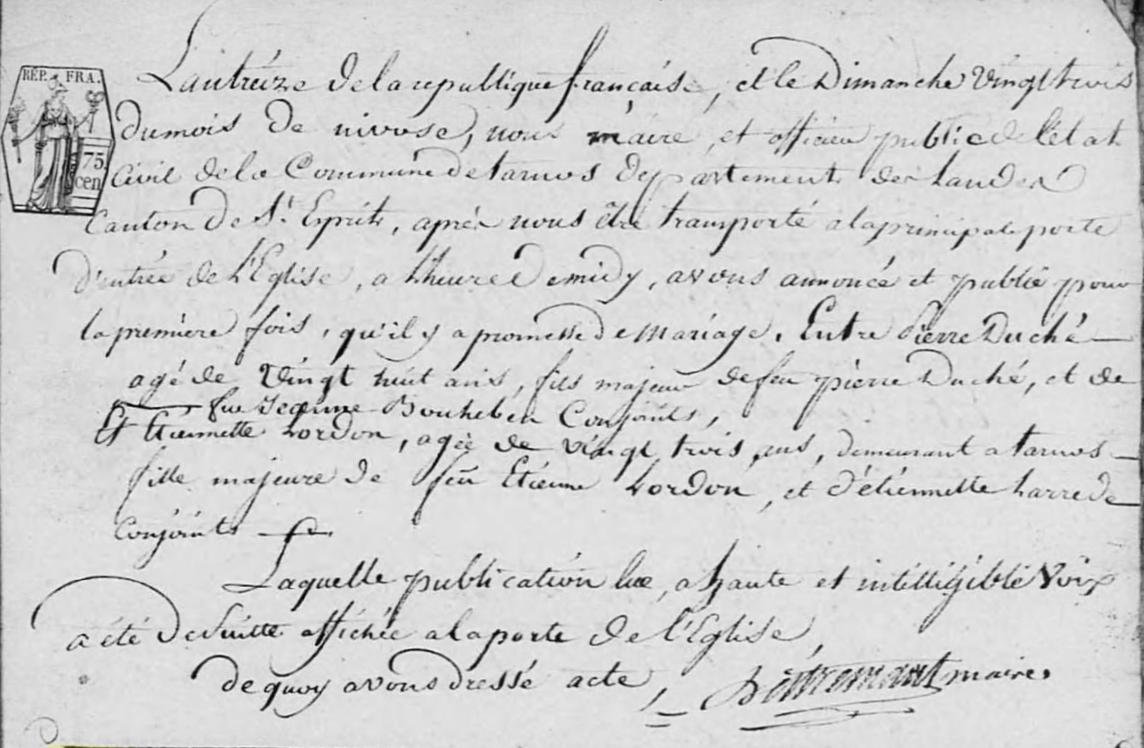 RÉP. FRA.
75
cen
L'an treize de la republique française, et le Dimanche vingt trois
du mois de nivose, nous maire, et officier public de l'etat
Civil de la Commune de tarnos Departement des landes
Canton de St. Esprit, après nous être transporté a la principale porte
d'entrée de l'Eglise, a l'heure de midy, avons annoncé et publié pour
la premiere fois, qu'il y a promesse de Mariage, Entre Pierre Duché
agé de vingt huit ans, fils majeur de feu pierre Duché, et de
feue Jeanne Bouheben Conjoints,
Et Etiennette Lordon, agée de vingt trois ans, demeurant a tarnos
fille majeure de feu Etienne Lordon, et d'étiennette Larrede
conjoints
Laquelle publication lue, a haute et intelligible voix
a été de suitte affichée a la porte de l'Eglise,
de quoy avons dressé acte, maire